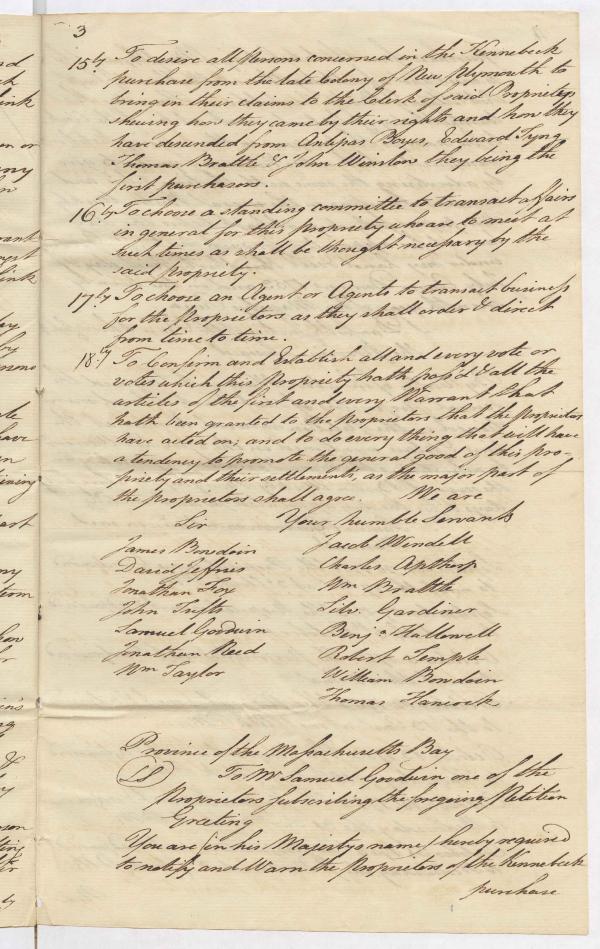 3
15ly To desire all persons concerned in the Kennebeck
purchase from the late Colony of New Plymouth to
bring in their claims to the Clerk of said Proprietys
shewing how they came by their rights and how they
have descended from Antipas Boyes, Edward Tyng
Thomas Brattle & John Winslow they being the
first purchasors.
16ly To choose a standing committee to transact affairs
in general for this Propriety who are to meet at
such times as shall be thought necessary by the
said propriety.
17ly To choose an Agent or Agents to transact business
for the proprietors as they shall order & direct
from time to time.
18ly To Confirm and Establish all and every vote or
votes which this propriety hath pass'd & all the
articles of the first and every Warrant that
hath been granted to the proprietors that the proprietors
have acted on; and to do every thing that will have
a tendency to promote the general good of this pro-
priety and their settlements, as the major part of
the proprietors shall agree. We are
Sir Your humble Servants
James Bowdoin Jacob Wendell
David Jeffries Charles Apthorp
Jonathan Fox Wm Brattle
John Tufts Silv. Gardiner
Samuel Goodwin Benja Hallowell
Jonathan Reed Robert Temple
Wm Taylor William Bowdoin
Thomas Hancock
Province of the Massachusetts Bay
LS To Mr Samuel Goodwin one of the
Proprietors subscribing the foregoing Petition
Greeting
You are (in his Majestys name) hereby required
to notify and Warn the Proprietors of the Kennebeck
purchase